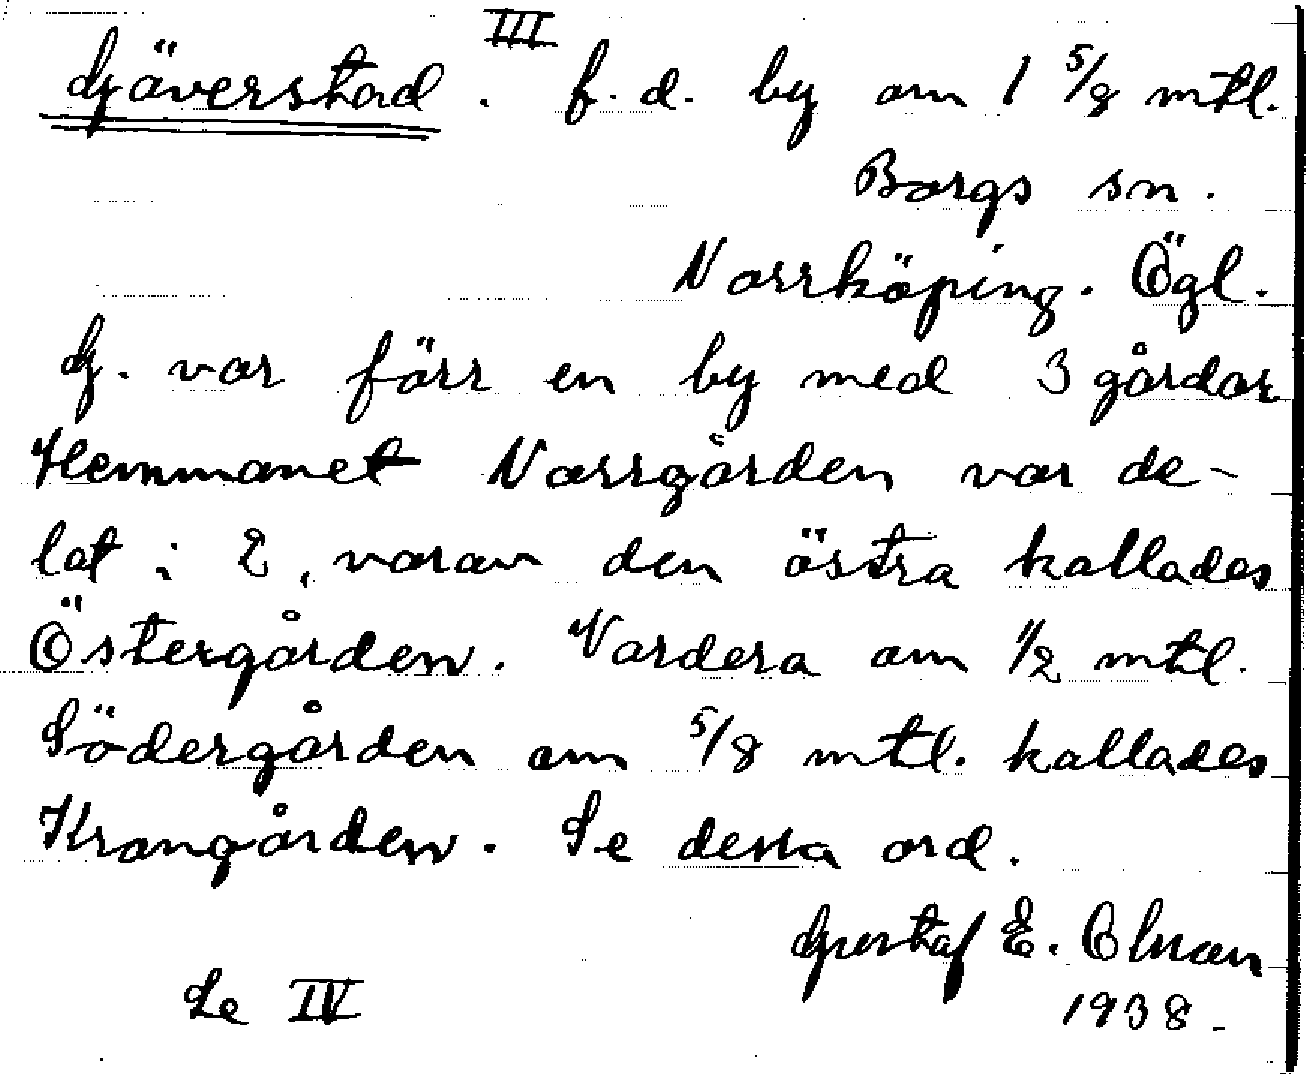 III
Gäverstad. f.d. by om 1 5/8 mtl.
Borgs sn.
Norrköping. Ögl.
G. var förr en by med 3 gårdar
Hemmanet Norrgården var de-
lat i 2, varav den östra kallades
Östergården. Vardera om 1/2 mtl.
Södergården om 5/8 mtl. kallades
Krongården. Se dessa ord.
Gustaf E.
Se IV 1938.